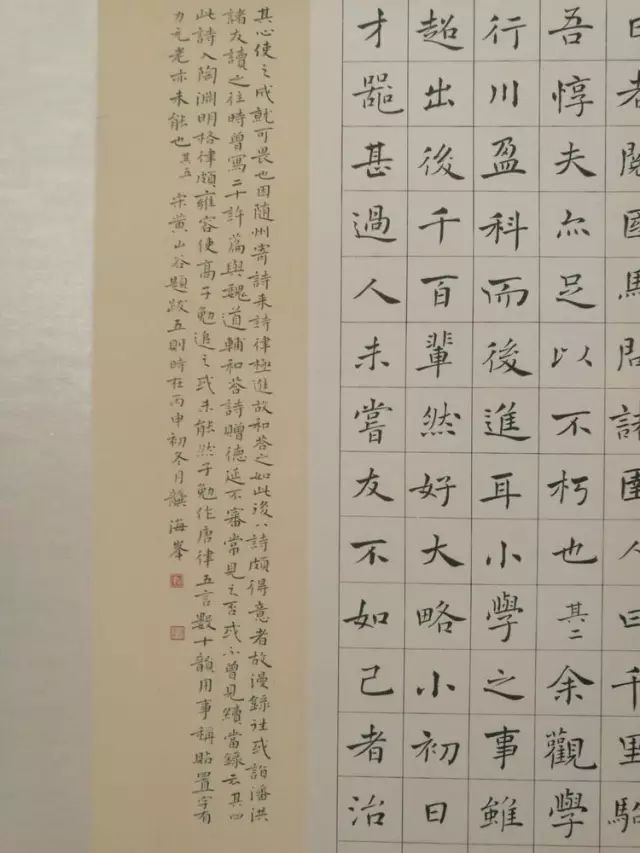 日者閱國馬問諸圉人曰千里駘
吾惇夫亦足以不朽也其二余觀學
行川盈科而後進耳小學之事雖
超出後千百輩然好大略小初日
才器甚過人未嘗友不如己者治
其心使之成就可畏也因随州寄詩来詩律極進故和答之如此後八詩頗得意者故漫録往或詣潘洪
諸友讀之往時曾寫二十許篇與魏道輔和答詩贈德延不審常見之否或不曾見續當録云其四
此詩入陶淵明格律頗雍容使高子勉追之或未能然子勉作唐律五言數十韻用事稱貼置字有
力元老亦未能也其五 宋黄山谷題跋五則時在丙申初冬月龔海峯